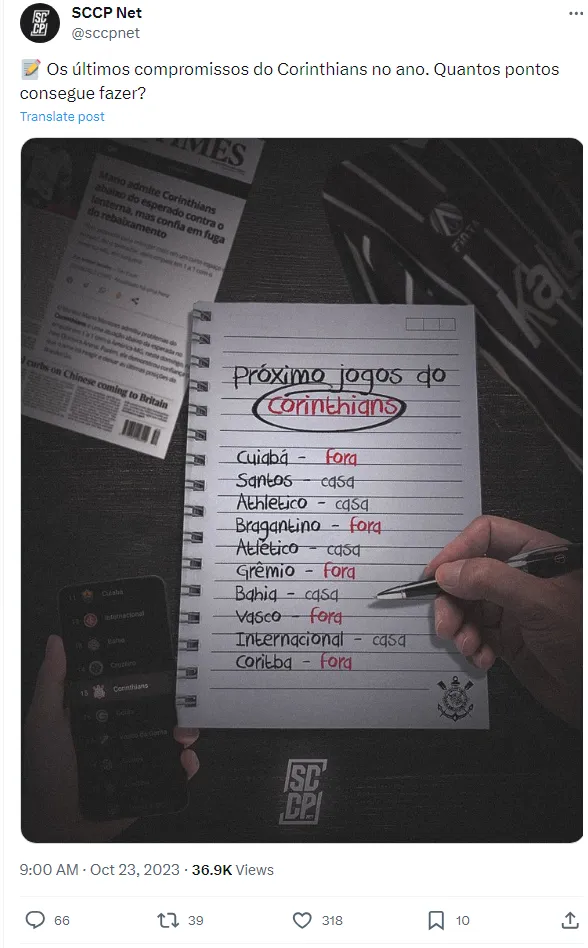 SCCP Net
@sccpnet
📝 Os últimos compromissos do Corinthians no ano. Quantos pontos
consegue fazer?
Translate post
TIMES
Mano admite Corinthians
abaixo do esperado contra o
lanterna, mas confia em fuga
do rebaixamento
curbs on Chinese coming to Britain
Kalu
Próximo jogos do
Corinthians
Cuiabá - Fora
Santos - casa
Athletico - casa
Bragantino - Fora
Atlético - casa
Grêmio - Fora
Bahia - casa
Vasco - Fora
Internacional - casa
Coritba - Fora
11 Cuiabá
Internacional
Bahia
Cruzeiro
Corinthians
Goiás
SC
CP
9:00 AM · Oct 23, 2023 · 36.9K Views
66 39 318 10